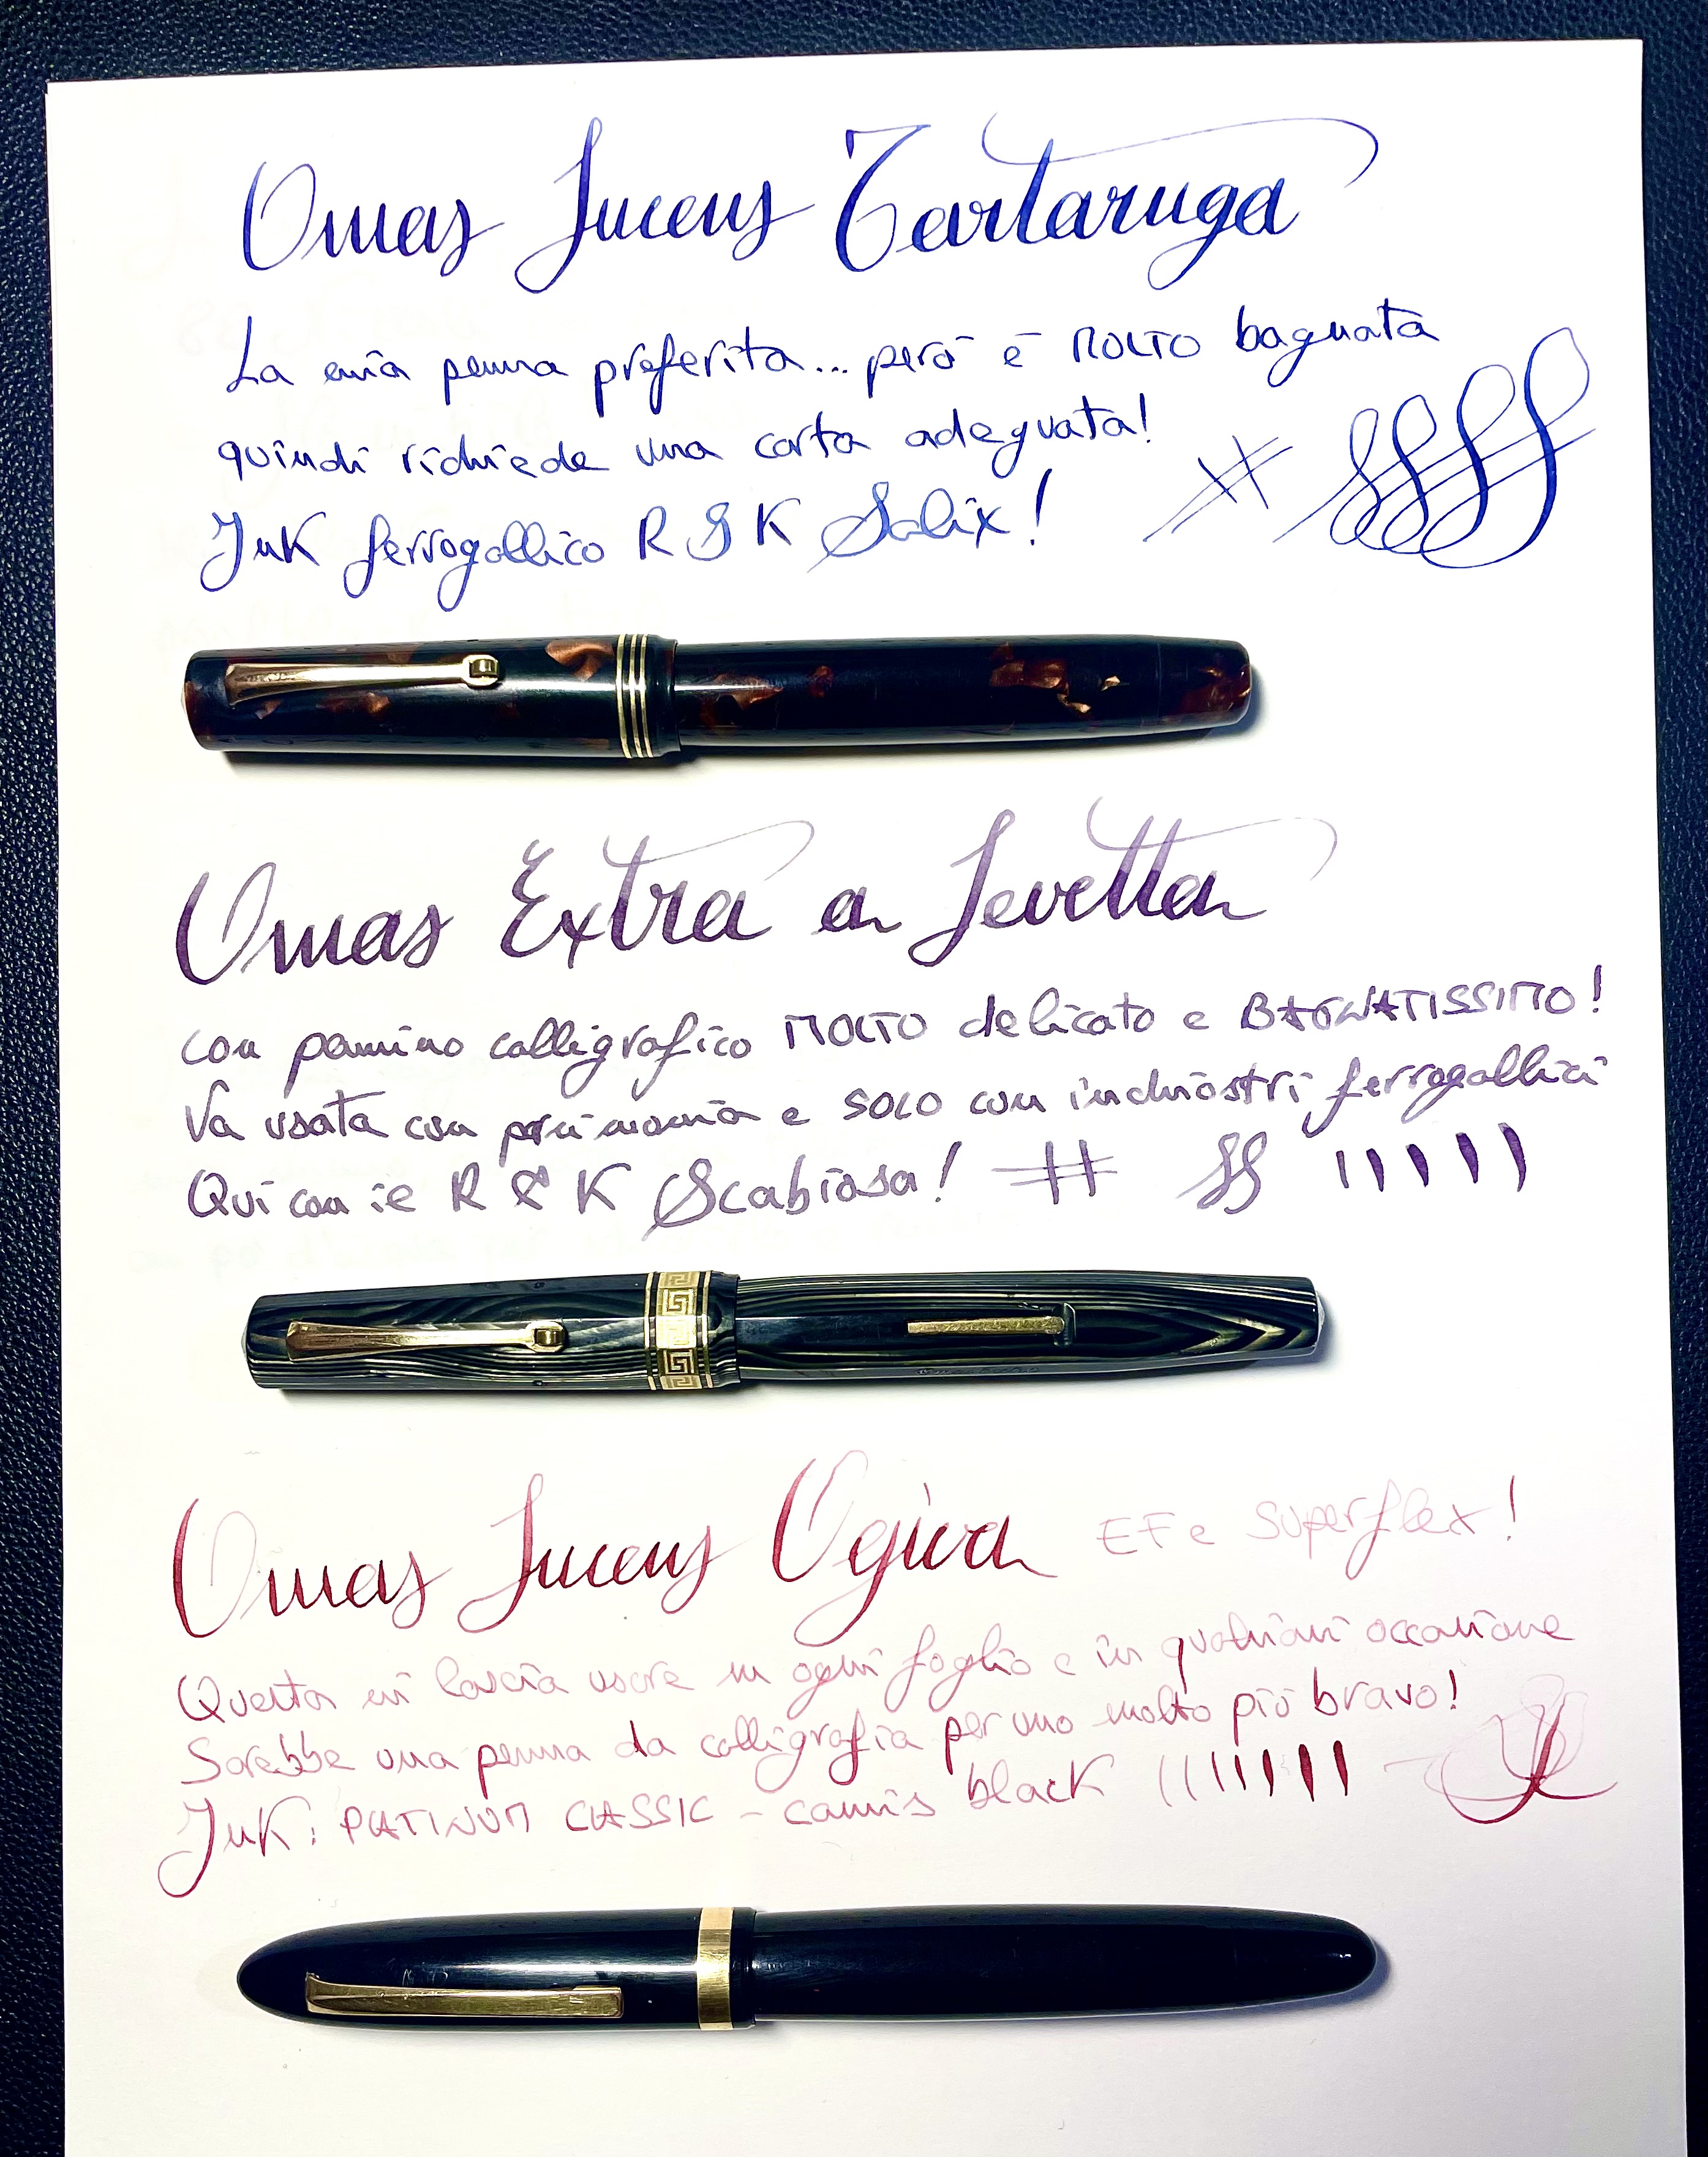 Omas Lucens Tartaruga
La mia penna preferita... però è MOLTO bagnata
quindi richiede una carta adeguata!
Ink ferrogallico R & K Salix!
Omas Extra a Levetta
con pennino calligrafico MOLTO delicato e BAGNATISSIMO!
Va usata con parsimonia e SOLO con inchiostri ferrogallici
Qui con ie R & K Scabiosa!
Omas Lucens Ogiva EF e Superflex!
Questa mi lascia usare in ogni foglio e in qualsiasi occasione
Sarebbe una penna da calligrafia per uno molto più bravo!
Ink: PLATINUM CLASSIC - cassis black